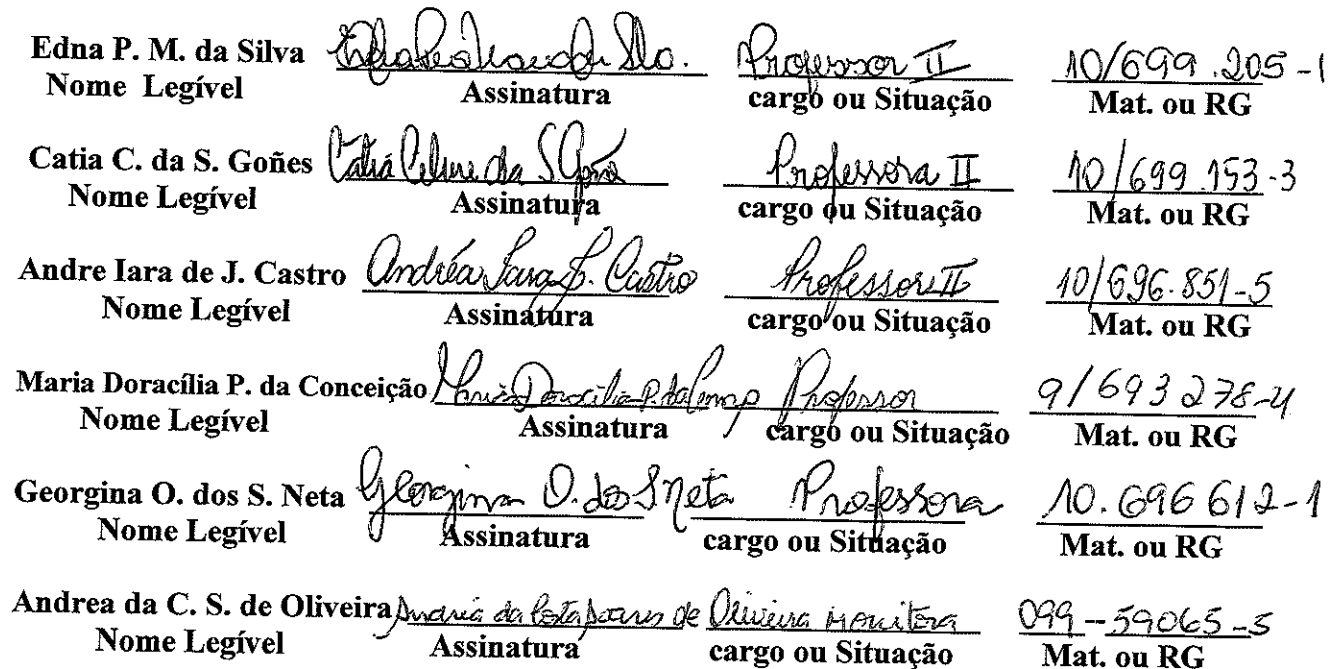 Edna P. M. da Silva Professor II 10/699.205-1
Nome Legível Assinatura cargo ou Situação Mat. ou RG
Catia C. da S. Goñes Catia Celine da S. Professora II 10/699.153-3
Nome Legível Assinatura cargo ou Situação Mat. ou RG
Andre Iara de J. Castro Andréa Iara J. Castro Professor II 10/696.851-5
Nome Legível Assinatura cargo ou Situação Mat. ou RG
Maria Doracília P. da Conceição Maria Doracilia P. da Professor 9/693278-4
Nome Legível Assinatura cargo ou Situação Mat. ou RG
Georgina O. dos S. Neta Georgina O. dos S. Neta Professora 10.696612-1
Nome Legível Assinatura cargo ou Situação Mat. ou RG
Andrea da C. S. de Oliveira Andréia da Costa Soares de Oliveira Monitora 099-59065-5
Nome Legível Assinatura cargo ou Situação Mat. ou RG